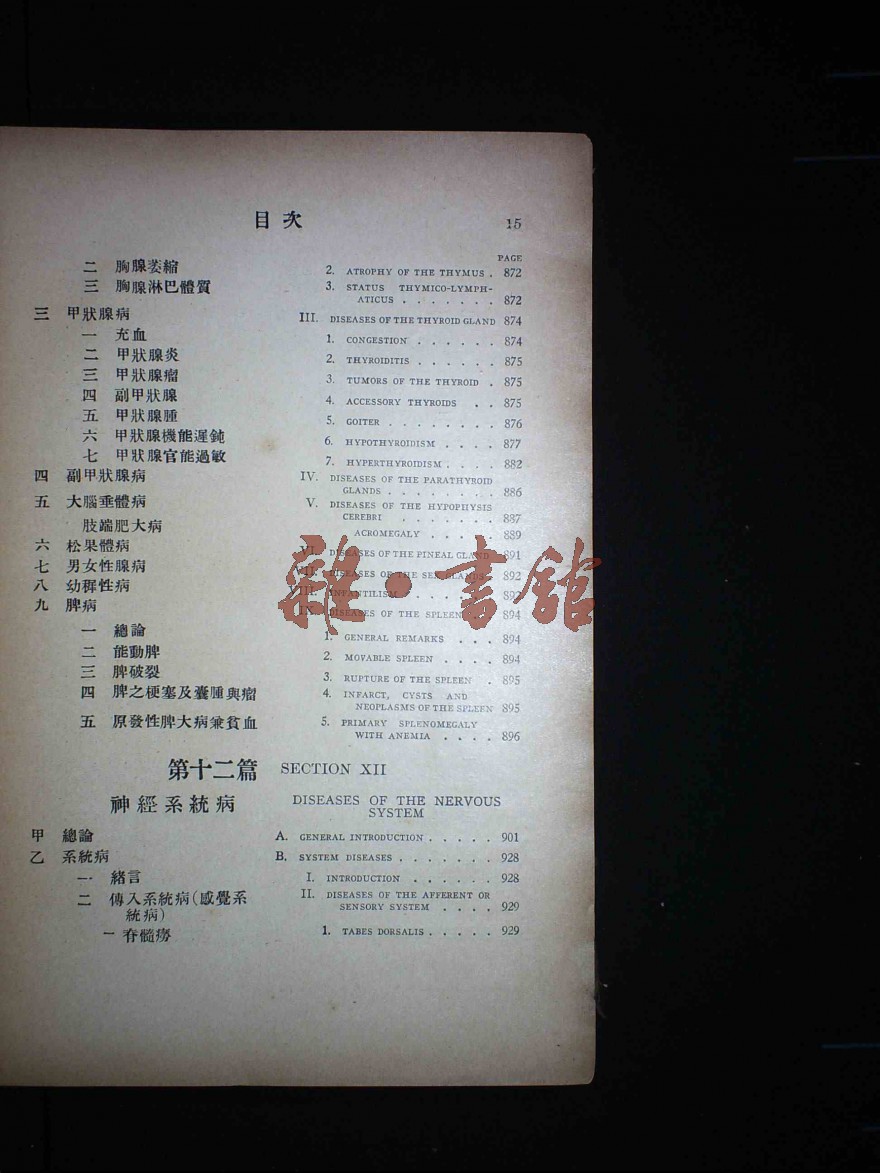 目次 15
PAGE
二 胸腺萎縮 2. ATROPHY OF THE THYMUS . 872
三 胸腺淋巴體質 3. STATUS THYMICO-LYMPH-
ATICUS . . . . . . . 872
三 甲狀腺病 III. DISEASES OF THE THYROID GLAND 874
一 充血 1. CONGESTION . . . . . . 874
二 甲狀腺炎 2. THYROIDITIS . . . . . . 875
三 甲狀腺瘤 3. TUMORS OF THE THYROID . 875
四 副甲狀腺 4. ACCESSORY THYROIDS . . 875
五 甲狀腺腫 5. GOITER . . . . . . . . 876
六 甲狀腺機能遲鈍 6. HYPOTHYROIDISM . . . . 877
七 甲狀腺官能過敏 7. HYPERTHYROIDISM . . . . 882
四 副甲狀腺病 IV. DISEASES OF THE PARATHYROID
GLANDS . . . . . . . . 886
五 大腦垂體病 V. DISEASES OF THE HYPOPHYSIS
CEREBRI . . . . . . . 887
肢端肥大病 ACROMEGALY . . . . . 889
六 松果體病 VI. DISEASES OF THE PINEAL GLAND 891
七 男女性腺病 VII. DISEASES OF THE SEX GLANDS 892
八 幼稺性病 VIII. INFANTILISM . . . . . . 892
九 脾病 IX. DISEASES OF THE SPLEEN . . 894
雜·書館
一 總論 1. GENERAL REMARKS . . . 894
二 能動脾 2. MOVABLE SPLEEN . . . . 894
三 脾破裂 3. RUPTURE OF THE SPLEEN . 895
四 脾之梗塞及囊腫與瘤 4. INFARCT, CYSTS AND
NEOPLASMS OF THE SPLEEN 895
五 原發性脾大病兼貧血 5. PRIMARY SPLENOMEGALY
WITH ANEMIA . . . . 896
第十二篇 SECTION XII
神經系統病 DISEASES OF THE NERVOUS
SYSTEM
甲 總論 A. GENERAL INTRODUCTION . . . . . 901
乙 系統病 B. SYSTEM DISEASES . . . . . . . 928
一 緒言 I. INTRODUCTION . . . . . . 928
二 傳入系統病(感覺系 II. DISEASES OF THE AFFERENT OR
統病) SENSORY SYSTEM . . . . 929
一 脊髓癆 1. TABES DORSALIS . . . . . 929